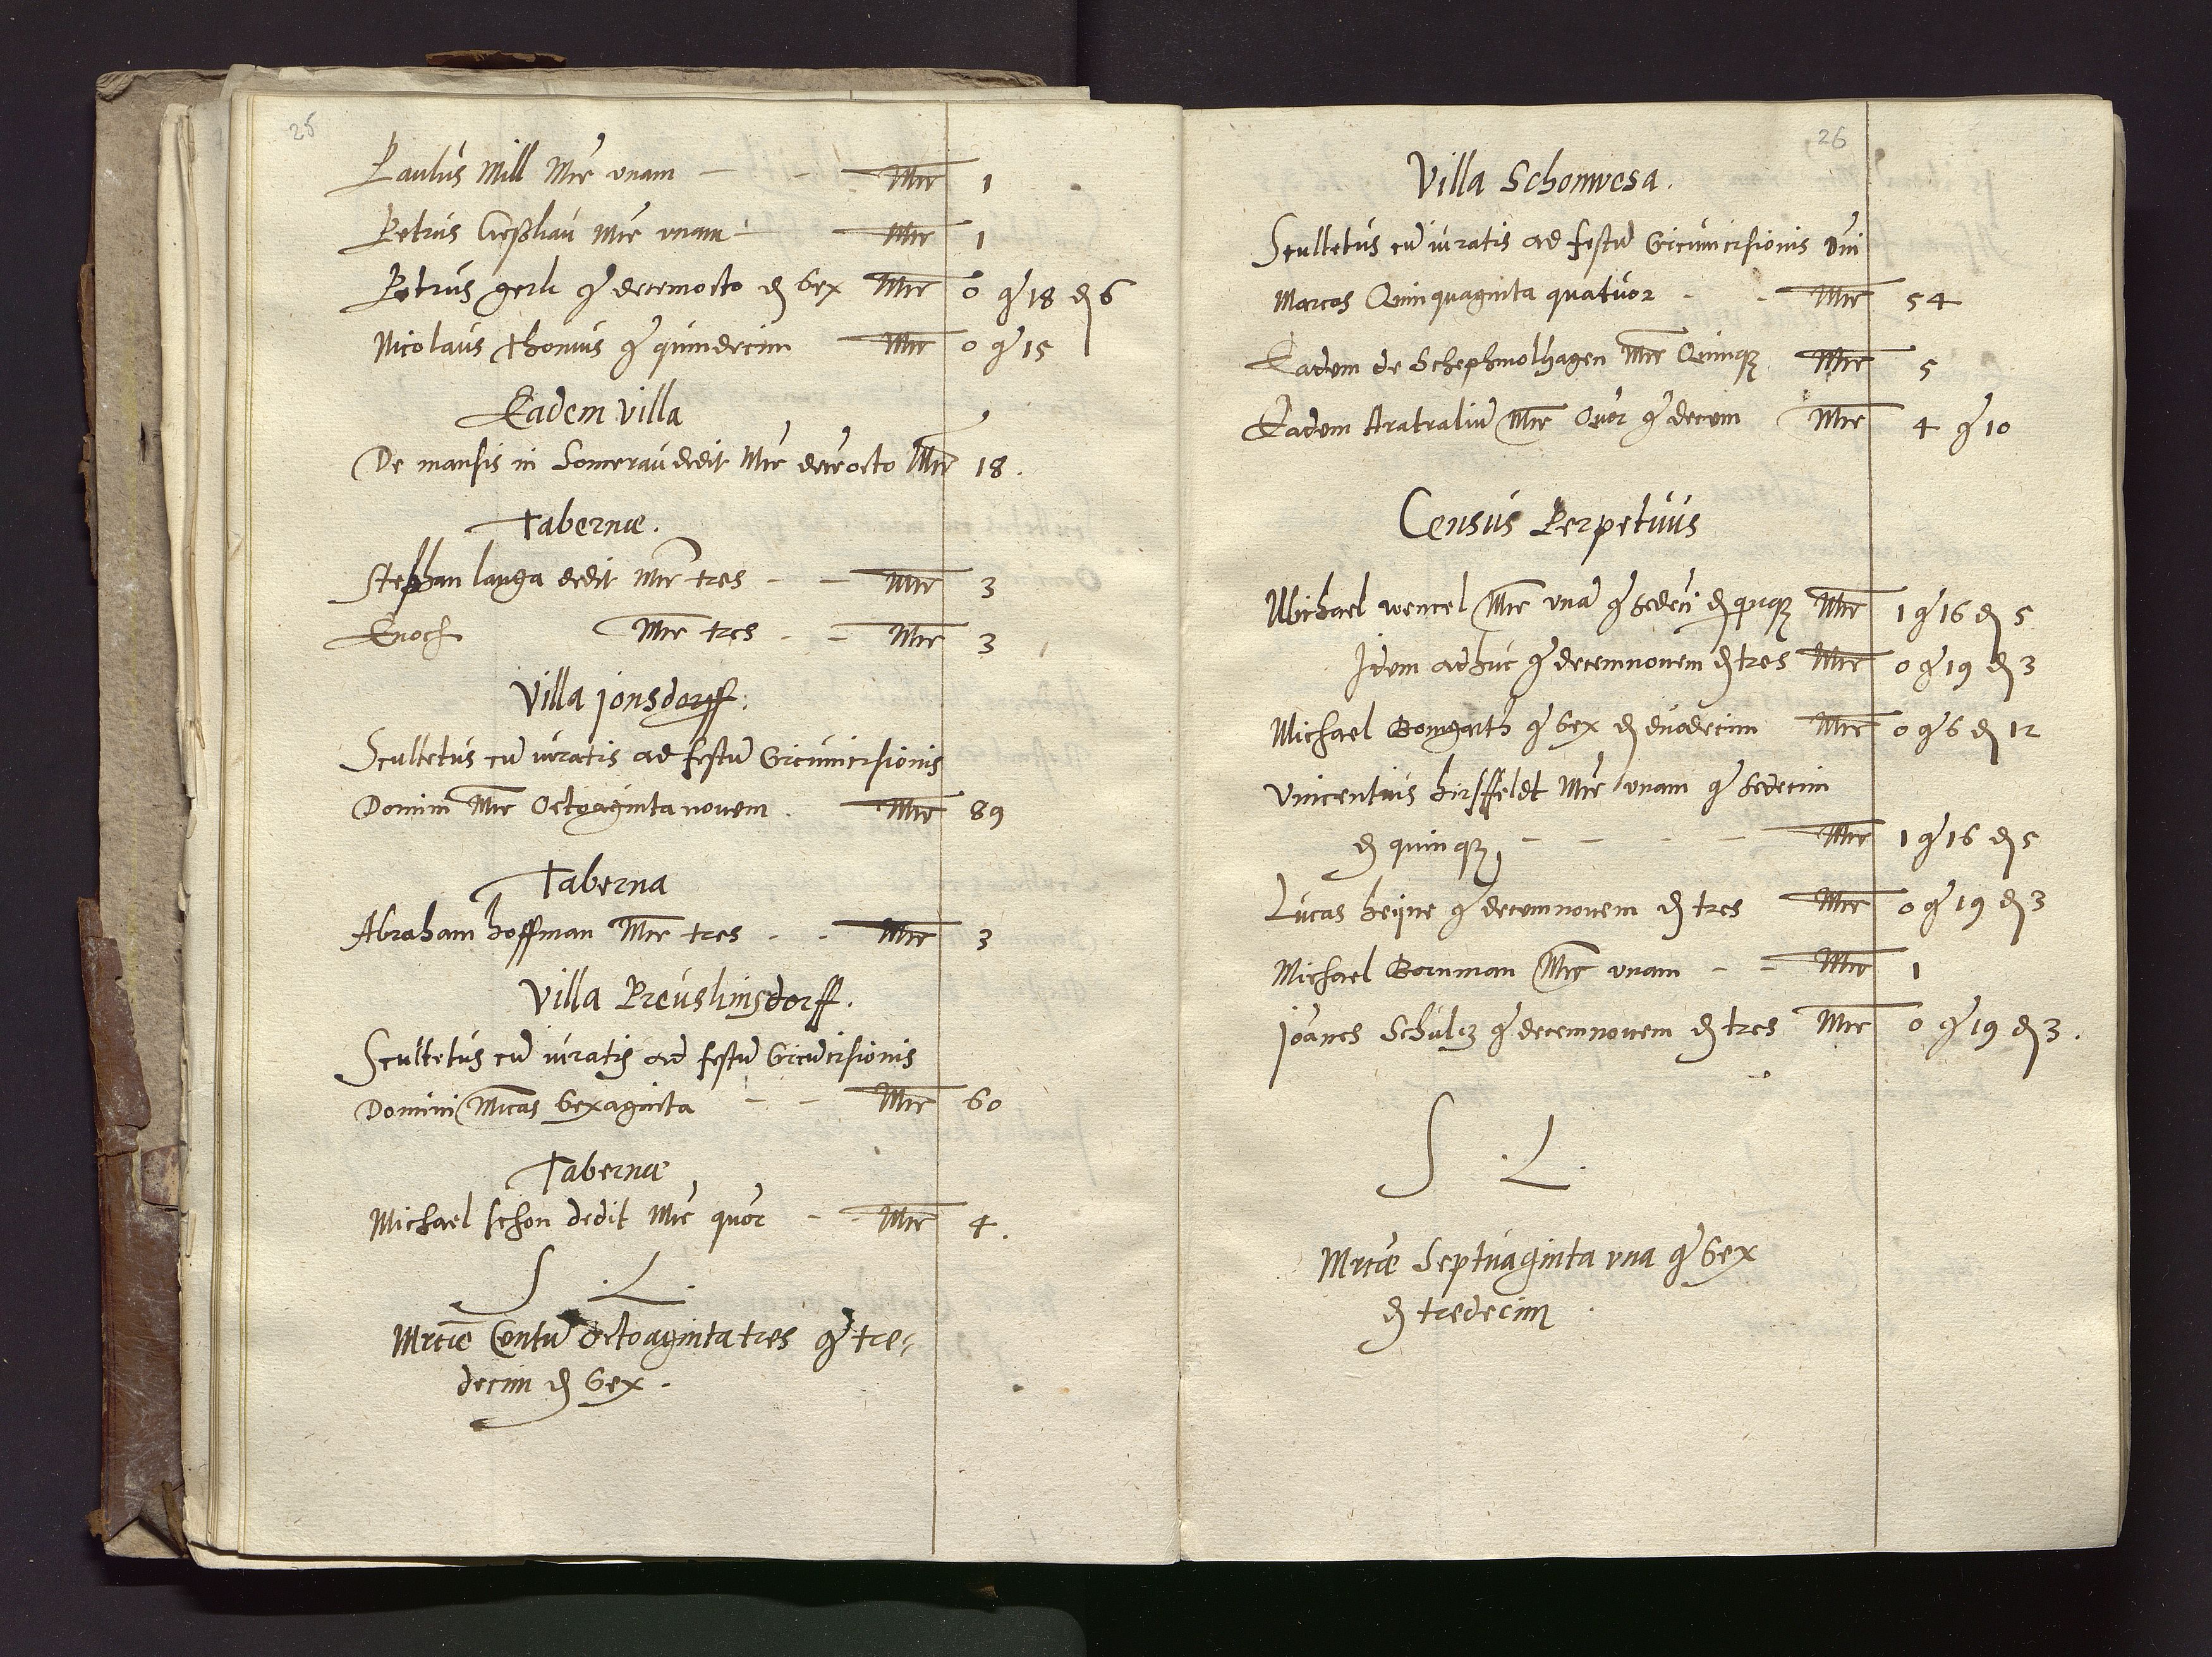 25
Paulus Mill Mrc vnam - - Mrc 1
Petrus Mrc vnam - Mrc 1
Petrus gerk g decemocto d sex Mrc 0 g 18 d 6
Nicolaus Thomus g quindecim Mrc 0 g 15
Eadem villa
De mansis in Somerau dedit Mrc decēocto Mrc 18.
Tabernæ.
Stephan langa dedit Mrc tres - - Mrc 3
Enoch Mrc tres - - Mrc 3
Villa jonsdorff.
Scultetus cū iuratis ad festū Circumcisionis
Domini Mrc Octoaginta novem. Mrc 89
Taberna
Abraham hoffman Mrc tres - - Mrc 3
Villa Preuslinsdorff.
Scultetus cū iuratis ad festū Circūcisionis
Domini Mrcas sexaginta - - Mrc 60
Tabernæ
Michael schon dedit Mrc quor - - Mrc 4.
S . L .
Mrcæ Centū octoaginta tres g tre-
decim d sex.
26
Villa Schonwesa.
Scultetus cū iuratis ad festū Circumcisionis Dni
Marcas Quinquaginta quatuor - - Mrc 54
Eadem de Schephmolhagen Mrc Quinqz Mrc 5
Eadem Aratraliū Mrc Quor g decem Mrc 4 g 10
Census Perpetuus
Michael wencel Mrc vnā g sedeci d qnqz Mrc 1 g 16 d 5
Idem adhuc g decemnouem d tres Mrc 0 g 19 d 3
Michael Bomgarth g sex d duodecim Mrc 0 g 6 d 12
Vincentius hirsffeldt Mrc vnam g sedecim
d quinqz - - - - Mrc 1 g 16 d 5
Lucas heijne g decemnouem d tres Mrc 0 g 19 d 3
Michael Bornman Mrc vnam - - Mrc 1
joānes Schulz g decemnouem d tres Mrc 0 g 19 d 3.
S . L .
Mrcæ Septuaginta vna g sex
d tredecim.